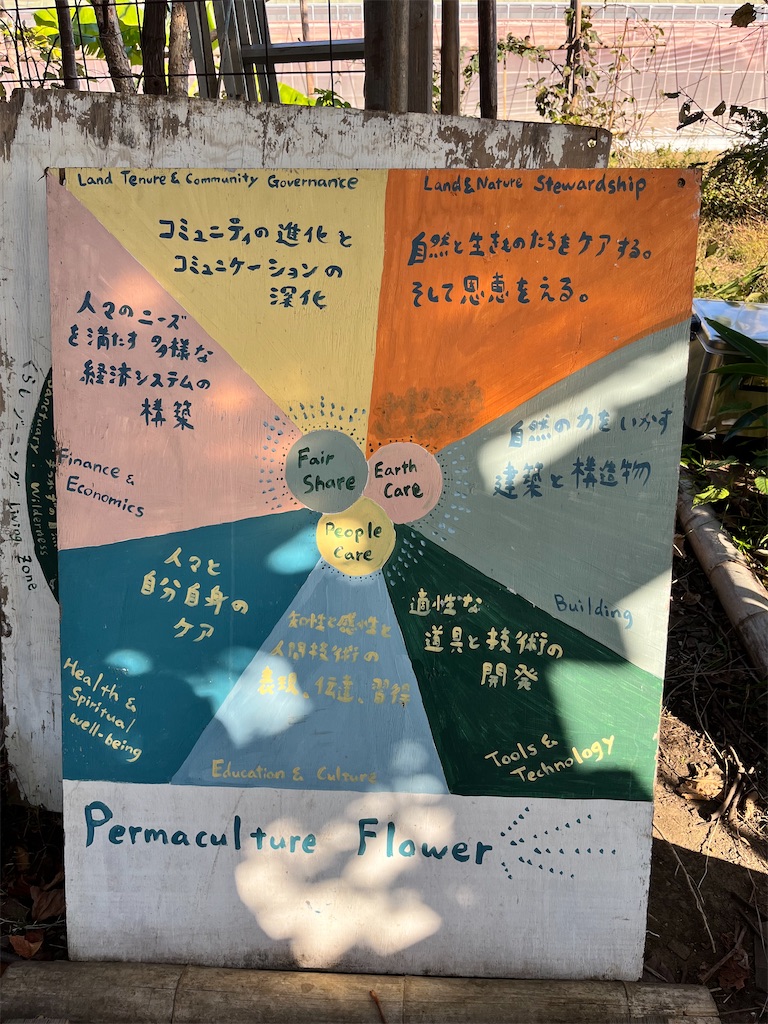 Land Tenure & Community Governance
コミュニティの進化と
コミュニケーションの
深化
Land & Nature Stewardship
自然と生きものたちをケアする。
そして恩恵をえる。
人々のニーズ
を満たす多様な
経済システムの
構築
Finance &
Economics
Fair
Share
Earth
Care
People
Care
自然の力をいかす
建築と構造物
Building
人々と
自分自身の
ケア
Health &
Spiritual
well-being
知性と感性と
人間技術の
表現、伝達、習得
Education & Culture
適性な
道具と技術の
開発
Tools &
Technology
Permaculture Flower
Sanctuary・Wilderness
Living Zone